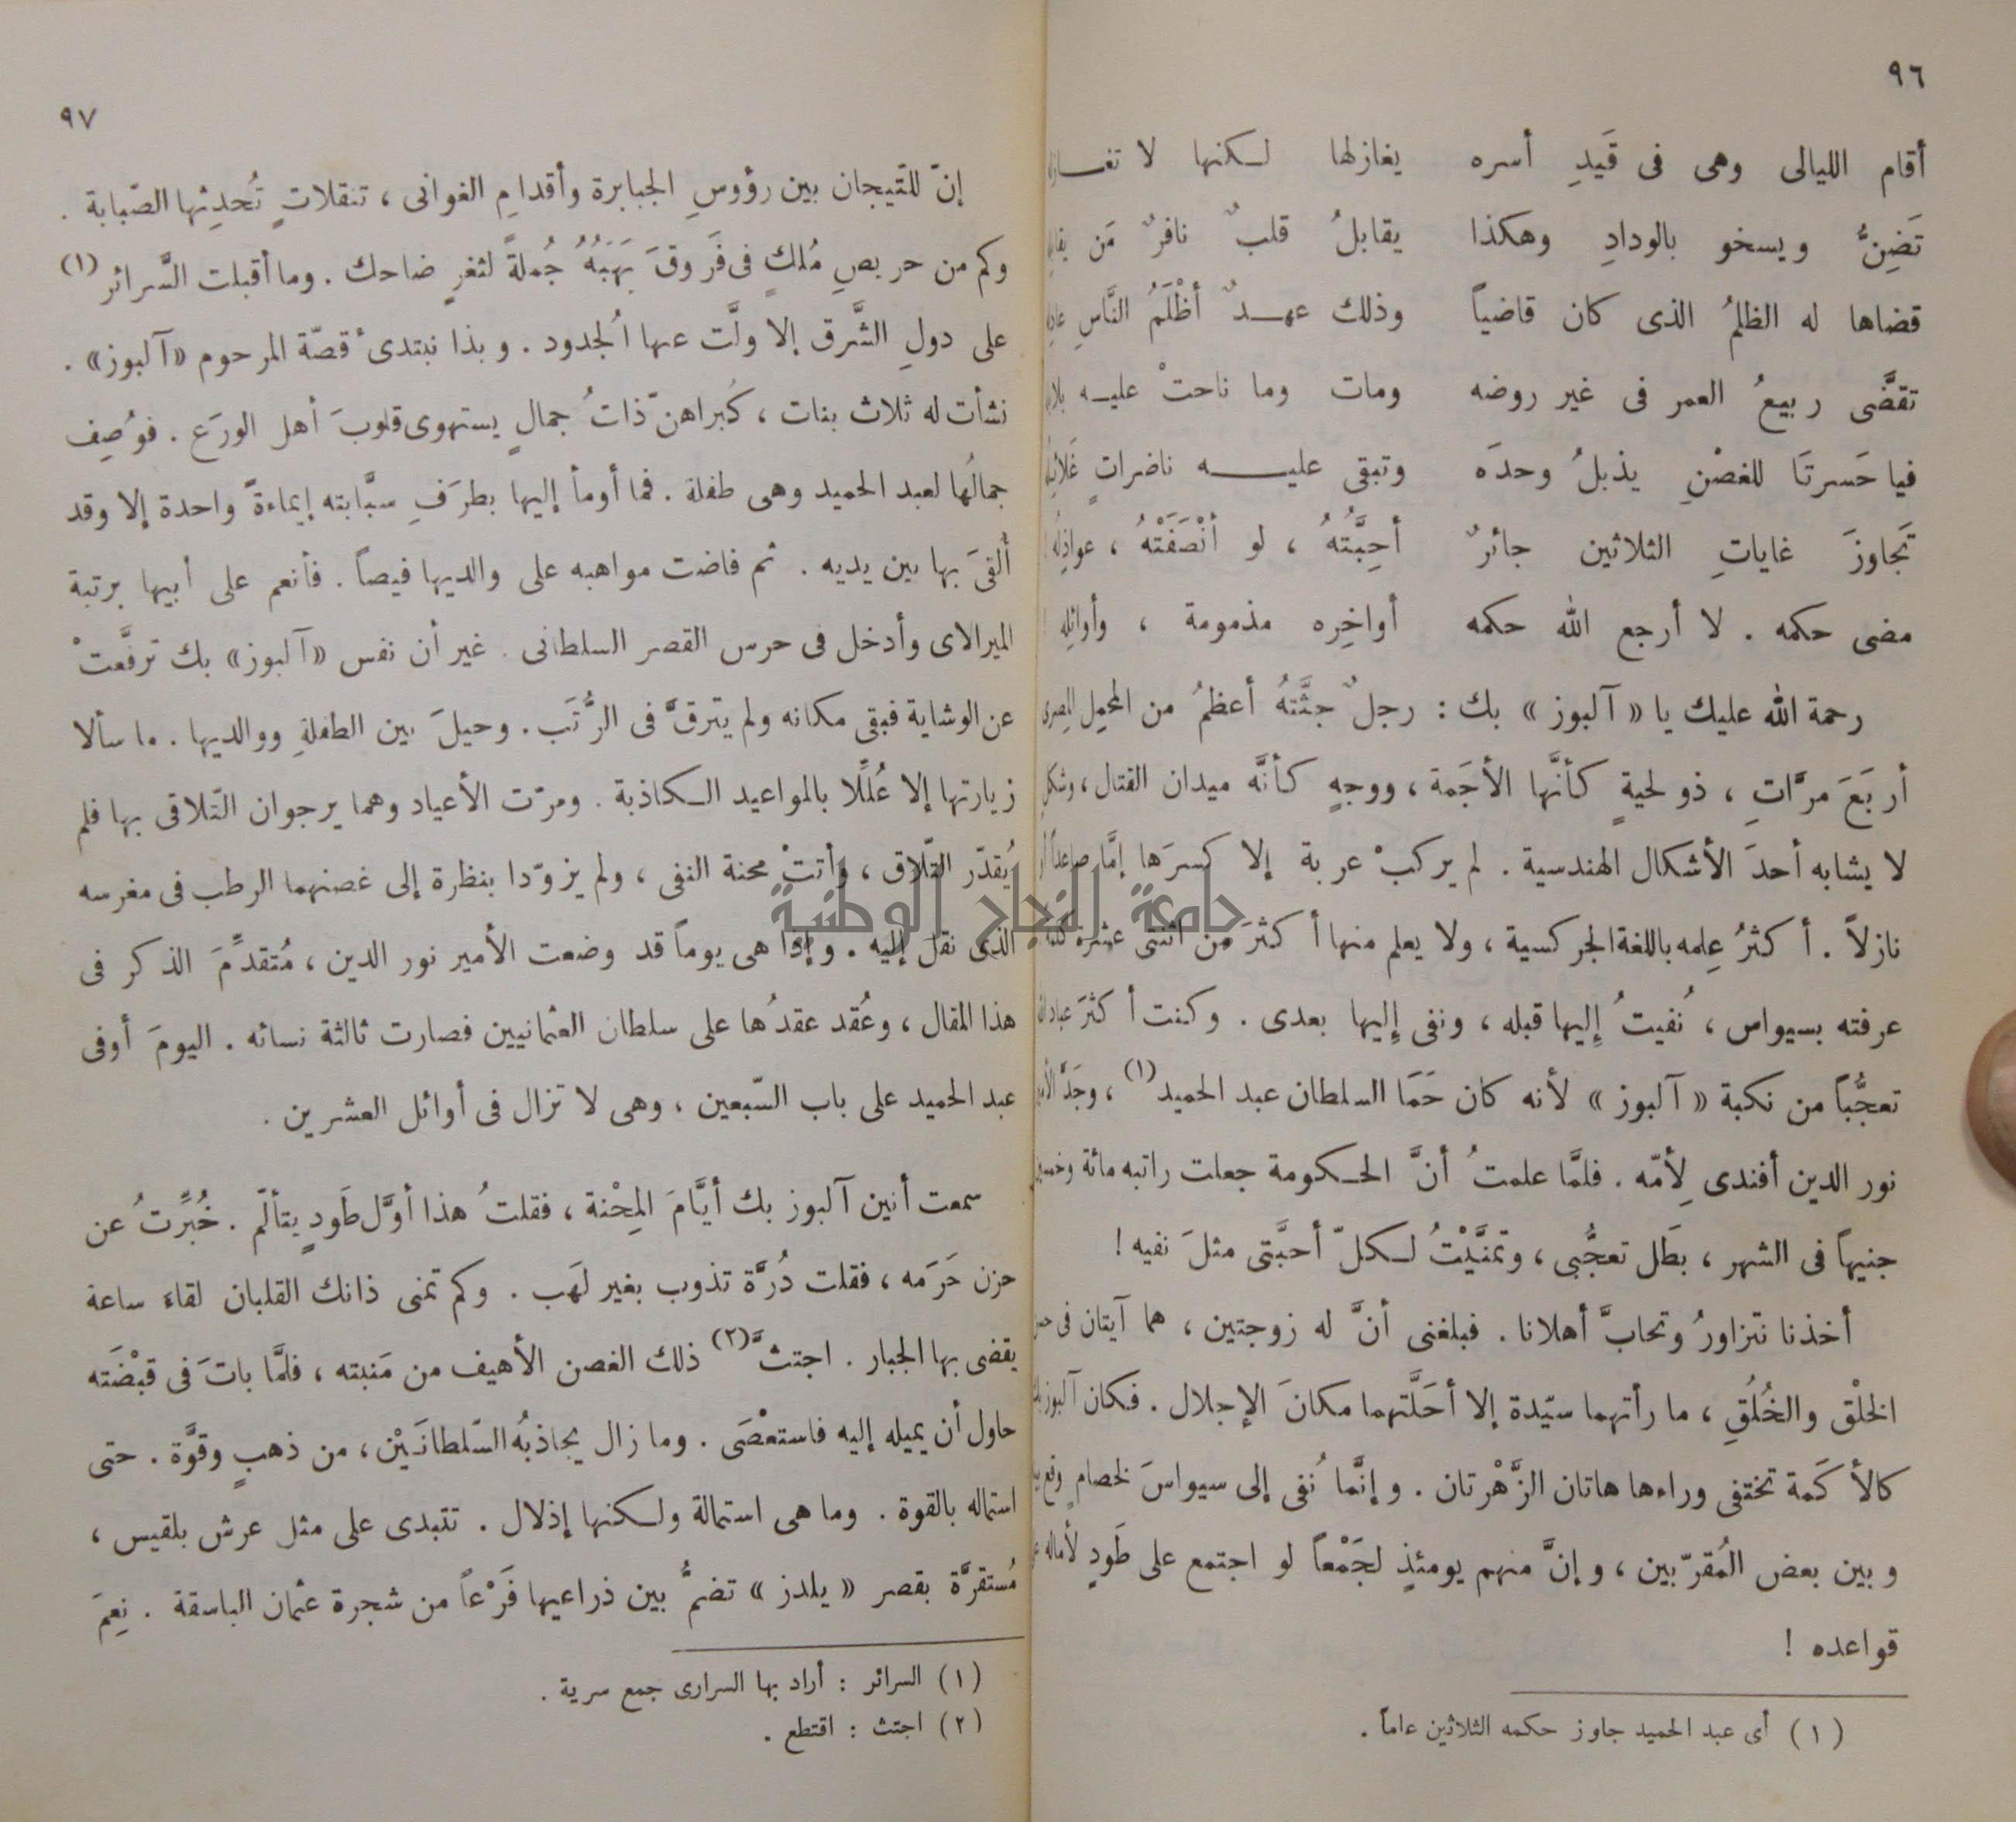 ٩٦
أقام الليالى وهى فى قَيدِ أسره يغازلها لكنها لا
تَضَنُّ ويسخو بالودادِ وهكذا يقابلُ قلبٌ نافرٌ مَن
قضاها له الظلمُ الذى كان قاضياً وذلك عهدٌ أظْلَمُ النَّاسِ
تقضَّى ربيعُ العمر فى غير روضه ومات وما ناحتْ عليه
فيا حَسرتَا للغصْنِ يذبلُ وحدَه وتبقى عليه ناضراتٍ
تَجاوزَ غاياتِ الثلاثين جائرٌ أحِبَّتُهُ ، لو أنْصَفَتْهُ ،
مضى حكمه . لا أرجع الله حكمه أواخِره مذمومة ، وأوائله
رحمة الله عليك يا « آلبوز » بك : رجلٌ جثَّتهُ أعظمُ من المحمِل المِصرى
أربَعَ مرَّاتِ ، ذو لحيةٍ كأنَّها الأجَمة ، ووجهٍ كأنَّه ميدان القتال ،
لا يشابه أحدَ الأشكال الهندسية . لم يركبْ عربة إلا كسرَها إمَّا صاعداً
نازلاً . أكثرُ عِلمه باللغة الجركسية ، ولا يعلم منها أكثرَ من اثنتى عشرة
عرفته بسيواس ، نُفيتُ إِليها قبله ، ونفى إِليها بعدى . وكنت أكثرَ
تعجُّباً من نكبة « آلبوز » لأنه كان حَمَا السلطان عبد الحميد (١) ، وجَدَّ
نور الدين أفندى لِأمّه . فلمَّا علمتُ أنَّ الحكومة جعلت راتبه مائة
جنيهاً فى الشهر ، بطَل تعجُّبى ، وتمنَّيْتُ لكلّ أحبَّتى مثلَ نفيه !
أخذنا نتزاورُ وتحابَّ أهلانا . فبلغنى أنَّ له زوجتين ، هما آيتان فى
الخلْق والخُلُقِ ، ما رأتهما سيّدة إلا أحَلَّتهما مكانَ الإجلال . فكان آلبوز
كالأكَمة تختفى وراءها هاتان الزَّهْرتان . وإنَّما نُفى إلى سيواسَ لخصامٍ
وبين بعض المُقرّبين ، وإنَّ منهم يومئذٍ لجَمْعاً لو اجتمع على طَودٍ لأماله
قواعده !
(١) أى عبد الحميد جاوز حكمه الثلاثين عاماً .
٩٧
إنّ للتّيجان بين رؤوسِ الجبابرة وأقدامِ الغوانى ، تنقلاتٍ تُحدِثها الصّبابة .
وكم من حريصِ مُلكٍ فى فَروقَ يَهَبُهُ جُملةً لثغرٍ ضاحك . وما أقبلت السَّرائر (١)
على دولِ الشَّرق إلا ولَّت عنها الجُدود . وبذا نبتدىُ قصّة المرحوم «آلبوز» .
نشأت له ثلاث بنات ، كبراهنّ ذاتُ جمالٍ يستهوى قلوبَ أهل الورَع . فوُصِف
جمالُها لعبد الحميد وهى طفلة . فما أومأ إليها بطرَفِ سبَّابته إيماءةً واحدة إلا وقد
أُلقىَ بها بين يديه . ثم فاضت مواهبه على والديها فيضاً . فأنعم على أبيها برتبة
الميرالاى وأدخل فى حرس القصر السلطانى . غير أن نفس «آلبوز» بك ترفَّعتْ
عن الوشاية فبقى مكانه ولم يترقَّ فى الرُّتَب . وحيلَ بين الطفلةِ ووالديها . ما سألا
زيارتها إلا عُلِّلا بالمواعيد الكاذبة . ومرّت الأعياد وهما يرجوان التّلاقى بها فلم
يُقدّر التّلاق ، وأتتْ محنة النفى ، ولم يزوّدا بنظرة إلى غصنهما الرطب فى مغرسه
الذى نقل إليه . وإذا هى يوماً قد وضعت الأمير نور الدين ، مُتقدِّمَ الذكر فى
هذا المقال ، وعُقد عقدُها على سلطان العثمانيين فصارت ثالثة نسائه . اليومَ أوفى
عبد الحميد على باب السّبعين ، وهى لا تزال فى أوائل العشرين .
سمعت أنين آلبوز بك أيَّامَ المِحْنة ، فقلتُ هذا أوَّل طَودٍ يتألّم . خُبِّرتُ عن
حزن حَرَمه ، فقلت دُرَّة تذوب بغير لهَب . وكم تمنى ذانك القلبان لقاءَ ساعة
يقضى بها الجبار . اجتثَّ (٢) ذلك الغصن الأهيف من مَنبته ، فلمَّا باتَ فى قبْضَته
حاول أن يميله إليه فاستعْصَى . وما زال يجاذبُه السّلطانَيْن ، من ذهبٍ وقوَّة . حتى
استماله بالقوة . وما هى استمالة ولكنها إذلال . تتبدى على مثل عرش بلقيس ،
مُستقرَّة بقصر « يلدز » تضمُّ بين ذراعيها فَرْعاً من شجرة عثمان الباسقة . نِعِمَ
(١) السرائر : أراد بها السرارى جمع سرية .
(٢) اجتث : اقتطع .
جامعة النجاح الوطنية